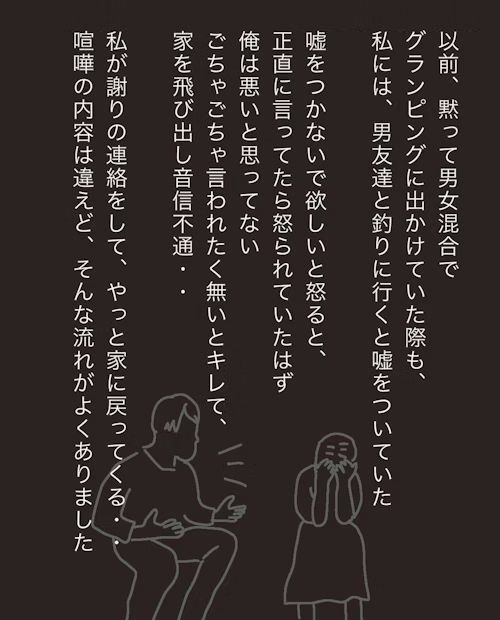 以前、黙って男女混合で
グランピングに出かけていた際も、
私には、男友達と釣りに行くと嘘をついていた
嘘をつかないで欲しいと怒ると、
正直に言ってたら怒られていたはず
俺は悪いと思ってない
ごちゃごちゃ言われたく無いとキレて、
家を飛び出し音信不通・・
私が謝りの連絡をして、やっと家に戻ってくる・・
喧嘩の内容は違えど、そんな流れがよくありました